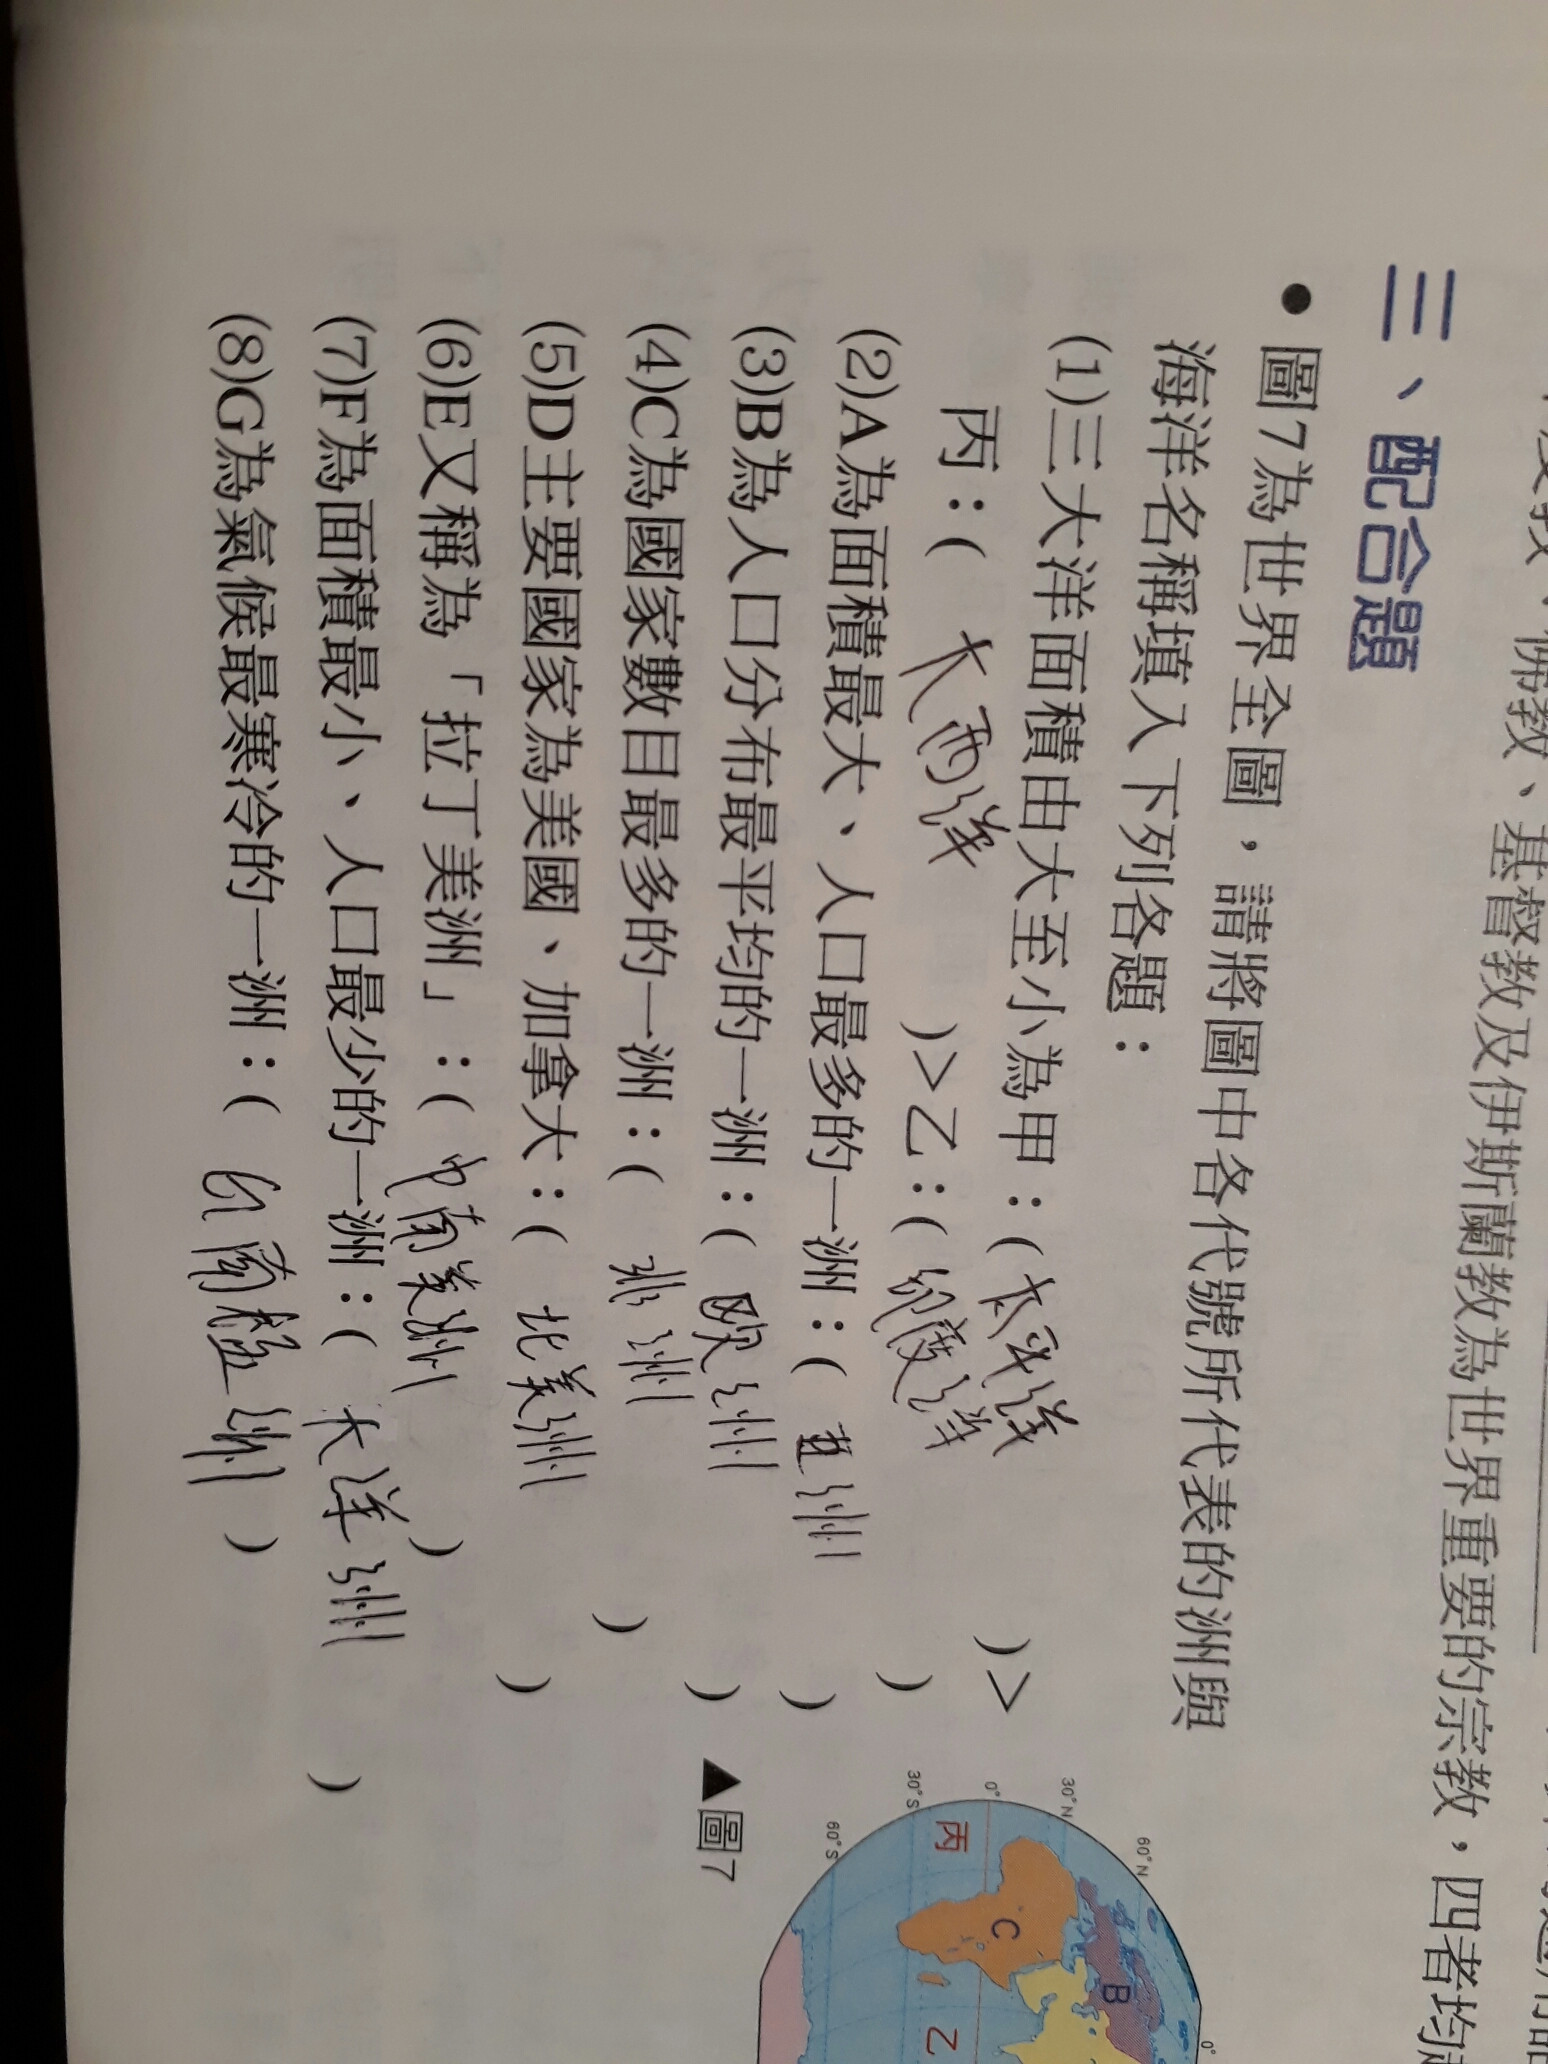 度教、佛教、基督教及伊斯蘭教為世界重要的宗教，四者均
三、配合題
●圖7為世界全圖，請將圖中各代號所代表的洲與
海洋名稱填入下列各題：
(1)三大洋面積由大至小為甲：( 太平洋 )>
丙：( 大西洋 )>乙：( 印度洋 )
(2)A為面積最大、人口最多的一洲：( 亞洲 )
(3)B為人口分布最平均的一洲：( 歐洲 )
(4)C為國家數目最多的一洲：( 非洲 )
(5)D主要國家為美國、加拿大：( 北美洲 )
(6)E又稱為「拉丁美洲」：( 中南美洲 )
(7)F為面積最小、人口最少的一洲：( 大洋洲 )
(8)G為氣候最寒冷的一洲：( 南極洲 )
60°N
0°
30°N
B
0°
C
30°S
丙
乙
60°S
▲圖7